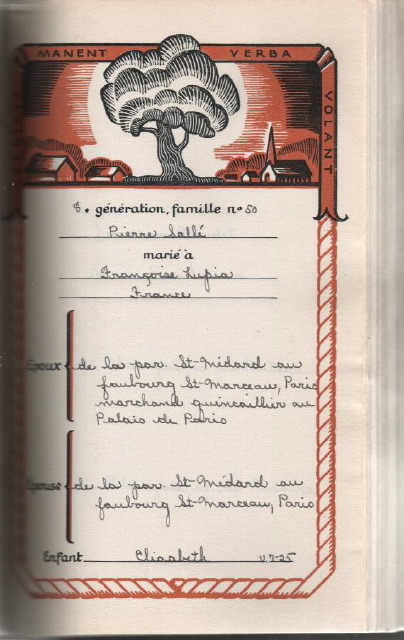 MANENT VERBA VOLANT
8e génération, famille nº 50
Pierre Sallé
marié à
Françoise Lupia
France
Epoux de la par. St-Médard au
faubourg St-Marceau, Paris
marchand quincaillier au
Palais de Paris
Epouse de la par. St-Médard au
faubourg St-Marceau, Paris
Enfant Elisabeth v.7-25